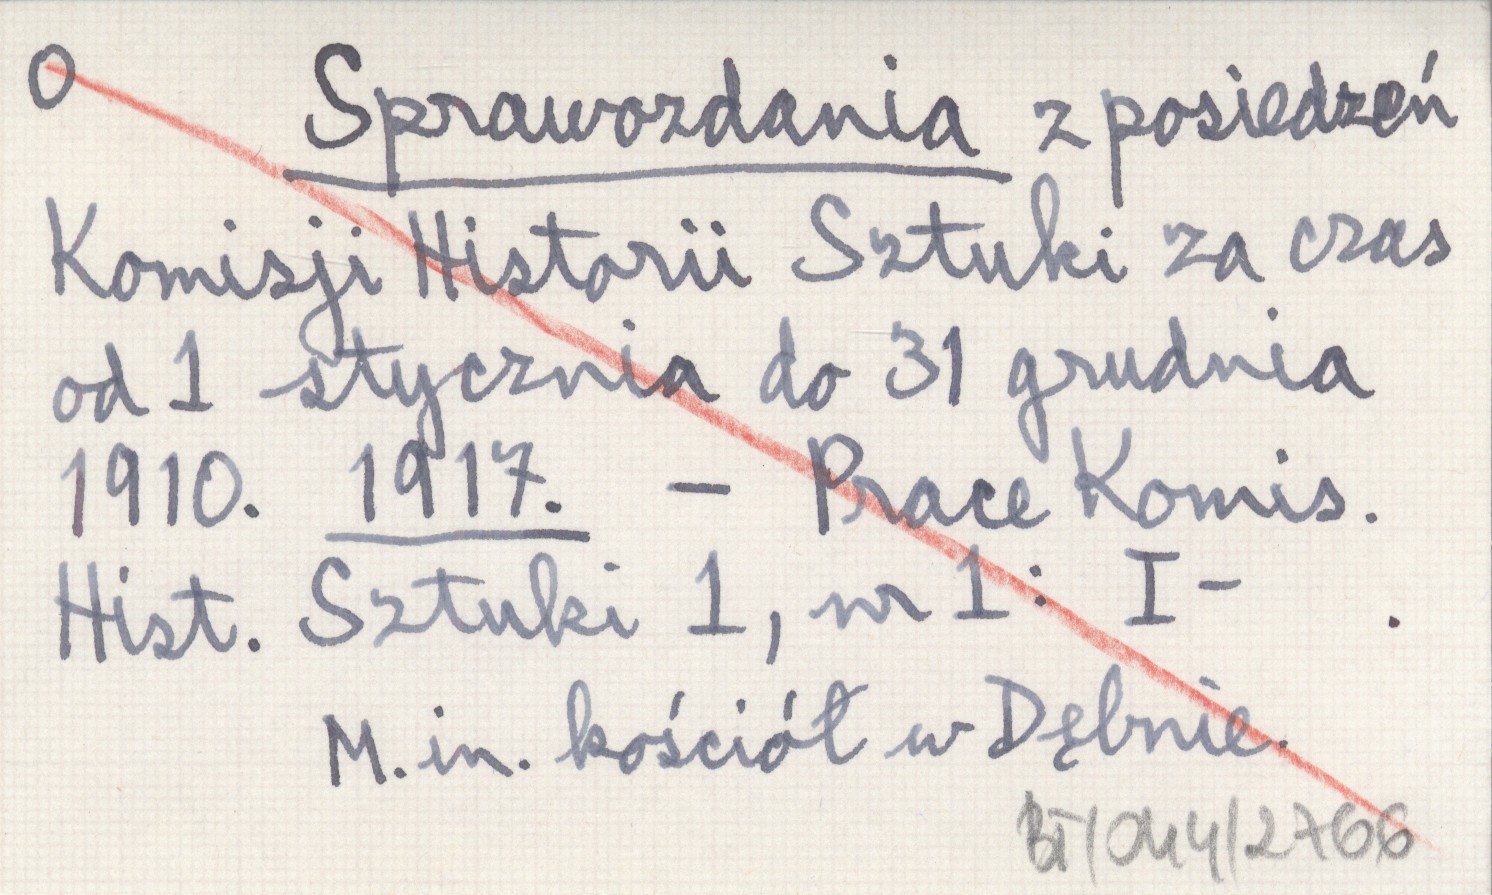 O Sprawozdania z posiedzeń
Komisji Historii Sztuki za czas
od 1 stycznia do 31 grudnia
1910. 1917. – Prace Komis.
Hist. Sztuki 1, nr 1: I– .
M. in. kościół w Dębnie.